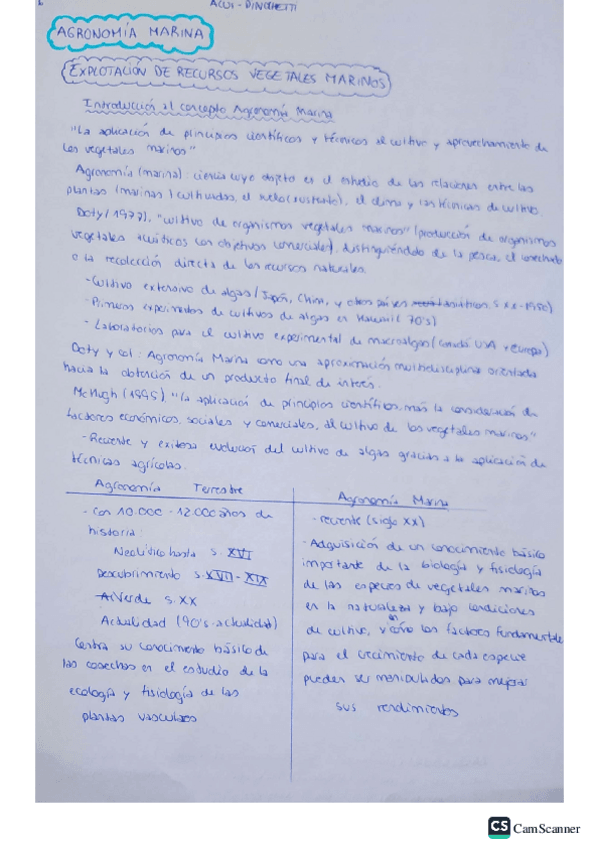 ACUI - PINCHETTI
AGRONOMÍA MARINA
EXPLOTACIÓN DE RECURSOS VEGETALES MARINOS
Introducción al concepto Agronomía Marina
"La aplicación de principios científicos y técnicos al cultivo y aprovechamiento de
los vegetales marinos"
Agronomía (marina): ciencia cuyo objeto es el estudio de las relaciones entre las
plantas (marinas) cultivadas, el suelo (sustrato), el clima y las técnicas de cultivo.
Doty (1977), "cultivo de organismos vegetales marinos" (producción de organismos
vegetales acuáticos con objetivos comerciales), distinguiéndolo de la pesca, el
o la recolección directa de los recursos naturales.
- Cultivo extensivo de algas (Japón, China, y otros países asiáticos. S. XX - 1950)
- Primeros experimentos de cultivos de algas en Hawaii (70's)
- Laboratorios para el cultivo experimental de macroalgas (Canadá USA y Europa)
Doty y col: Agronomía Marina como una aproximación multidisciplina orientada
hacia la obtención de un producto final de interés.
McHugh (1995) "la aplicación de principios científicos, más la consideración de
factores económicos, sociales y comerciales, al cultivo de los vegetales marinos"
- Reciente y exitosa evolución del cultivo de algas gracias a la aplicación de
técnicas agrícolas.
Agronomía Terrestre
- Con 10.000 - 12.000 años de
historia:
Neolítico hasta s. XVI
Descubrimiento s. XVII - XIX
Verde s. XX
Actualidad (90's - actualidad)
Centra su conocimiento básico de
las cosechas en el estudio de la
ecología y fisiología de las
plantas vasculares
Agronomía Marina
- reciente (siglo XX)
- Adquisición de un conocimiento básico
importante de la biología y fisiología
de las especies de vegetales marinos
en la naturaleza y bajo condiciones
de cultivo, y en cómo los factores fundamentales
para el crecimiento de cada especie
pueden ser manipulados para mejorar
sus rendimientos
CS CamScanner